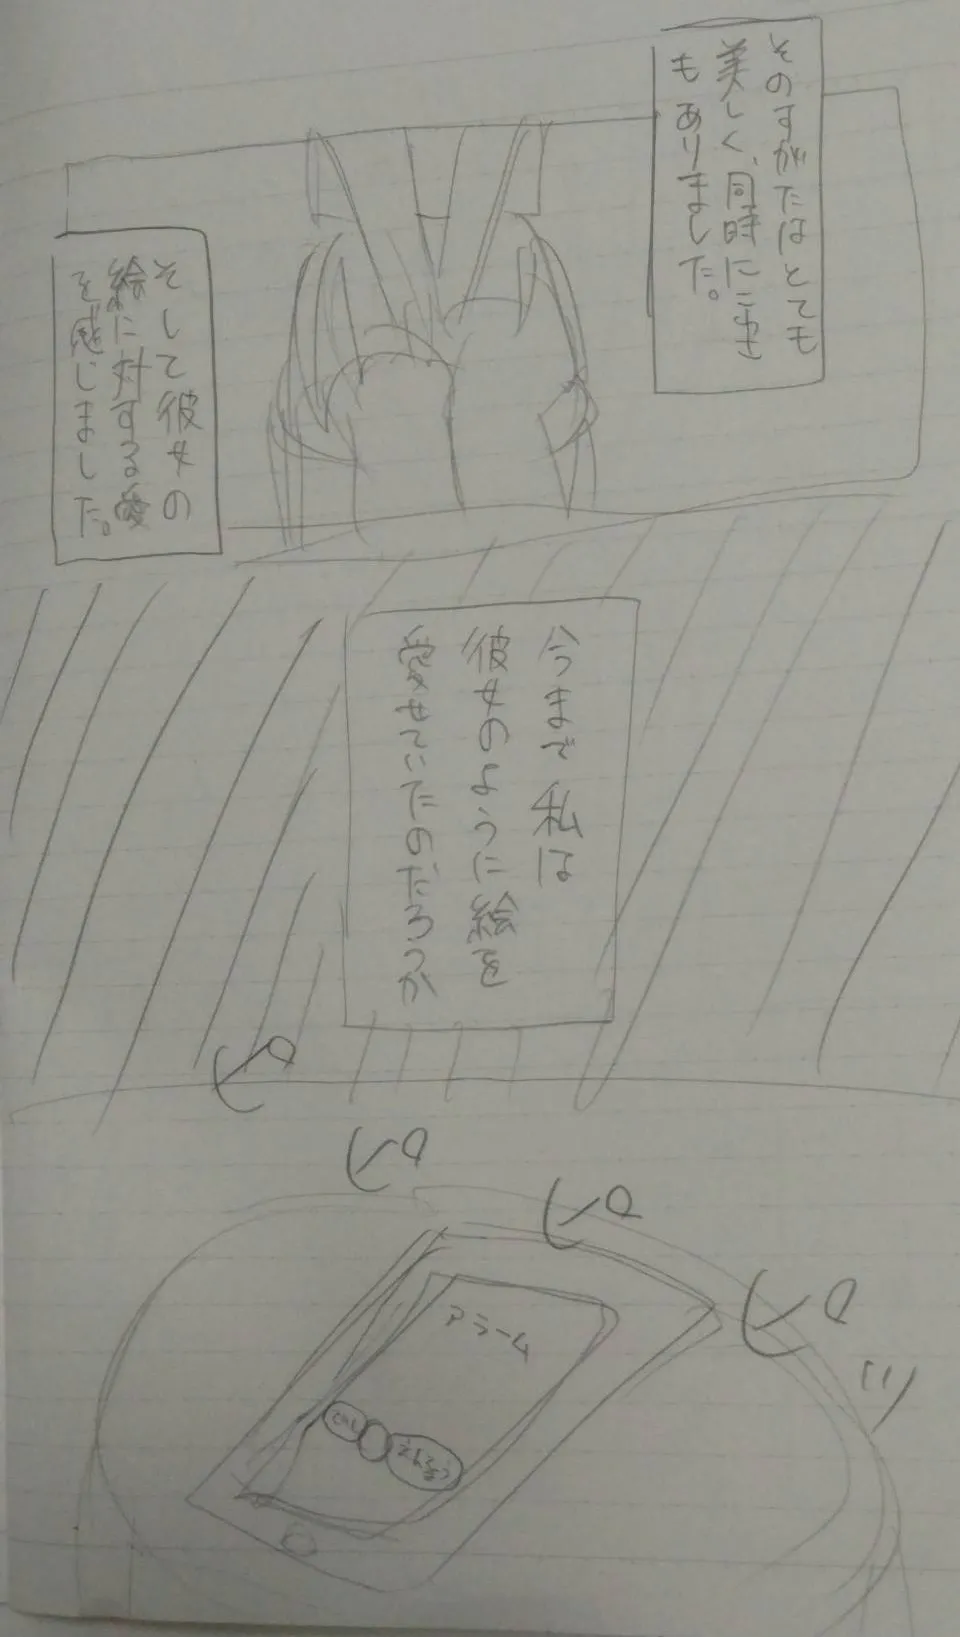 そのすがたはとても
美しく、同時に
もありました。
そして彼女の
絵に対する愛
を感じました。
今まで私は
彼女のように絵を
愛せていたのだろうか
ピ
ピ
ピ
ピッ
アラーム